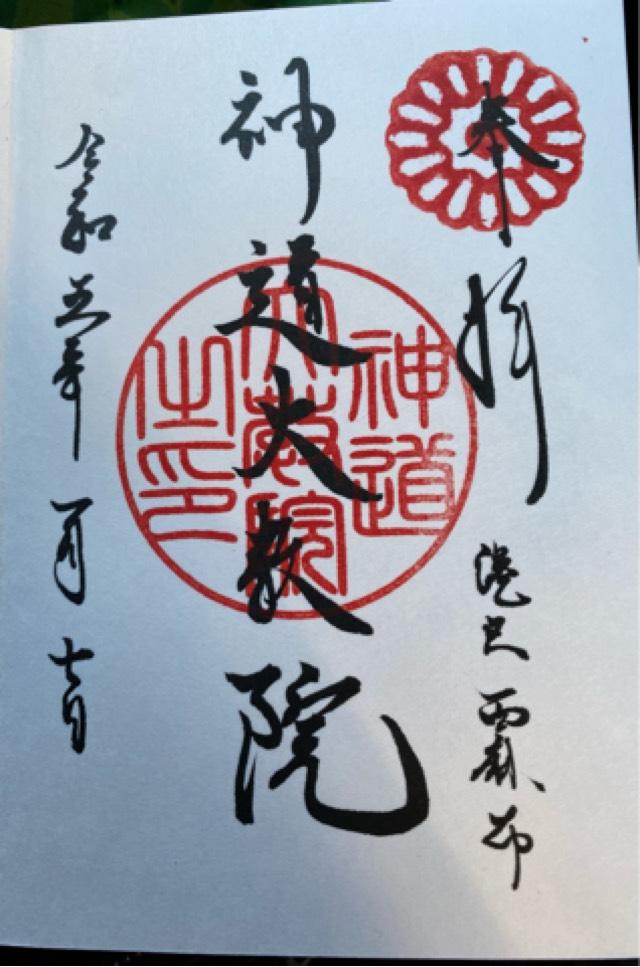 奉拝
港区西麻布
神道大教院
神道
大教院
之印
令和五年一月七日